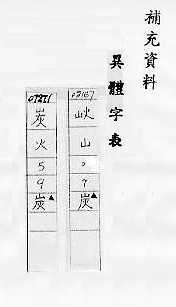 補充資料
異體字表
山
7
炭▲
炭
火
5
9
炭▲